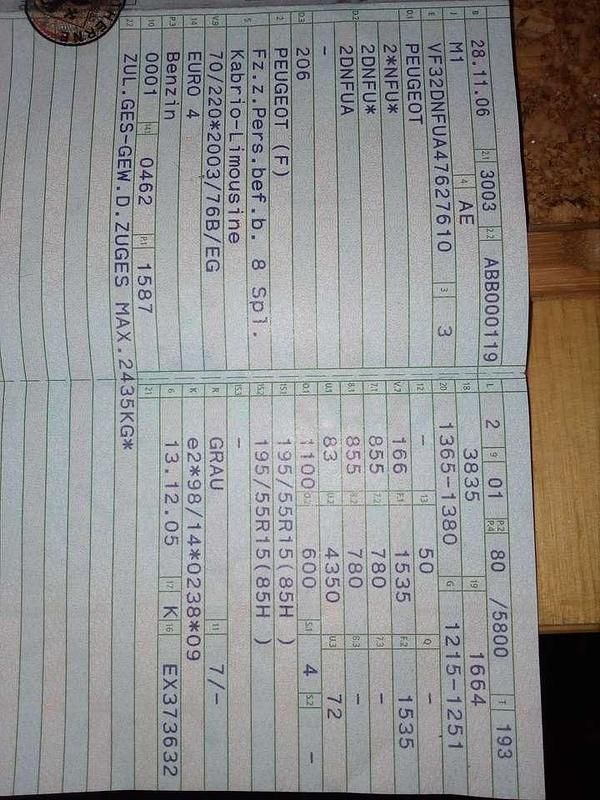 B 28.11.06 2.1 3003 2.2 ABB000119
J M1 4 AE
E VF32DNFUA47627610 3 3
D.1 PEUGEOT
2*NFU*
2DNFU*
D.2 2DNFUA
-
D.3 206
2 PEUGEOT (F)
5 Fz.z.Pers.bef.b. 8 Spl.
Kabrio-Limousine
V.9 70/220*2003/76B/EG
14 EURO 4
P.3 Benzin
10 0001 14.1 0462 P.1 1587
22 ZUL.GES-GEW.D.ZUGES MAX.2435KG*
L 2 9 01 P.2 P.4 80 /5800 T 193
18 3835 19 1664
20 1365-1380 G 1215-1251
12 - 13 50 Q -
V.7 166 F.1 1535 F.2 1535
7.1 855 7.2 780 7.3 -
8.1 855 8.2 780 8.3 -
U.1 83 U.2 4350 U.3 72
O.1 1100 O.2 600 S.1 4 S.2 -
15.1 195/55R15(85H )
15.2 195/55R15(85H )
15.3 -
R GRAU 11 7/-
K e2*98/14*0238*09
6 13.12.05 17 K 16 EX373632
21